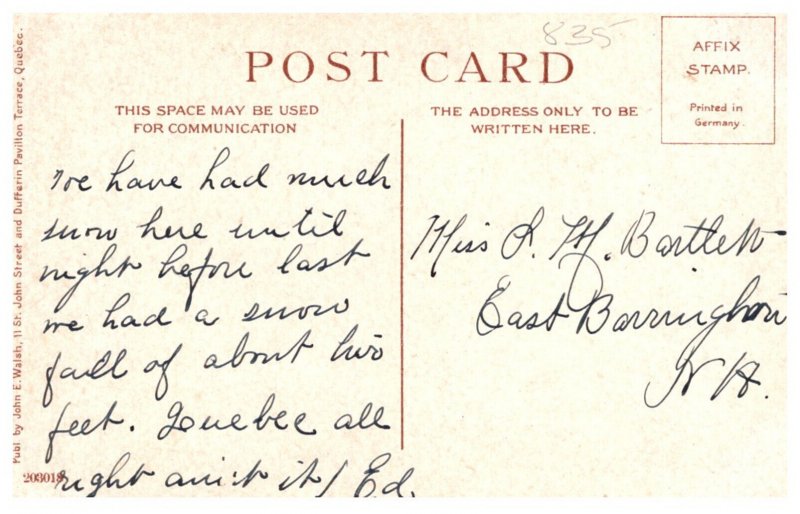 835
POST CARD
AFFIX
STAMP.
Printed in
Germany.
THIS SPACE MAY BE USED
FOR COMMUNICATION
THE ADDRESS ONLY TO BE
WRITTEN HERE.
We have had much
snow here until
night before last
we had a snow
fall of about two
feet. Quebec all
right ain't it / Ed.
Miss L. M. Bartlett
East Barrington
N H.
Publ by John E. Walsh, 11 St. John Street and Dufferin Pavillon Terrace, Quebec.
203018